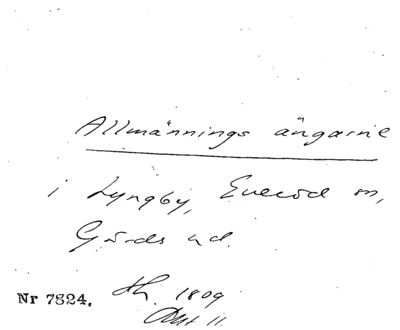 Allmännings ängarne
i Lyngby, Everöd sn,
Gärds hd.
Nr 7324. 1809
Akt 11.